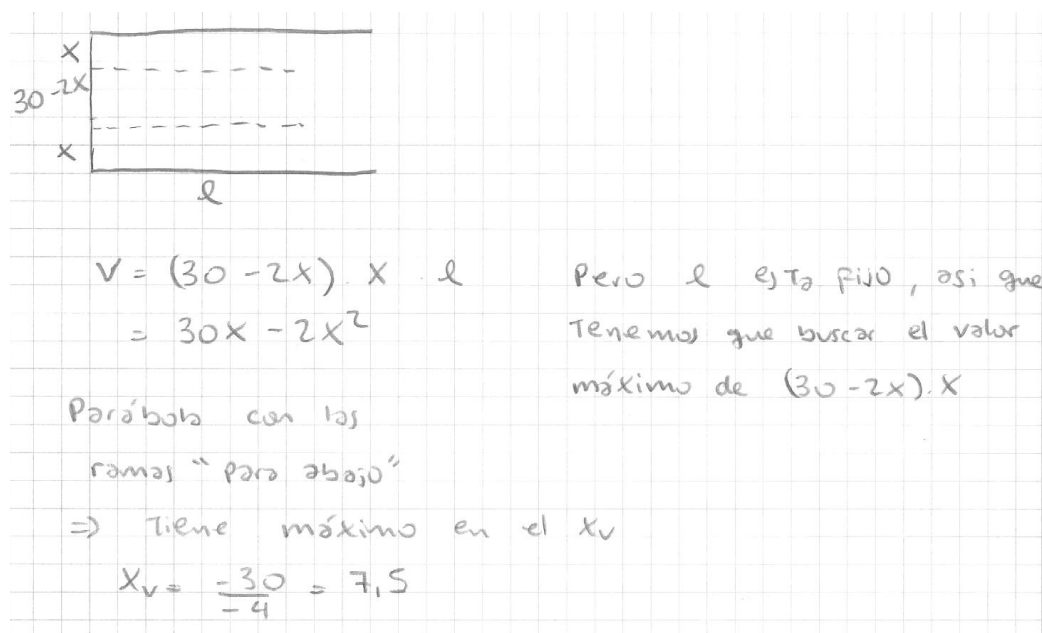 x
30-2x
x
l
V = (30 - 2x) . x . l
= 30x - 2x²
Pero l esta fijo, asi que
Tenemos que buscar el valor
máximo de (30-2x).x
Parábola con las
ramas "para abajo"
=> Tiene máximo en el xv
xv = -30/-4 = 7,5